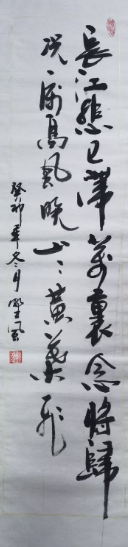 長江悲已滯萬裏念將歸
况属高風晚山々黄葉飛
癸卯年冬月